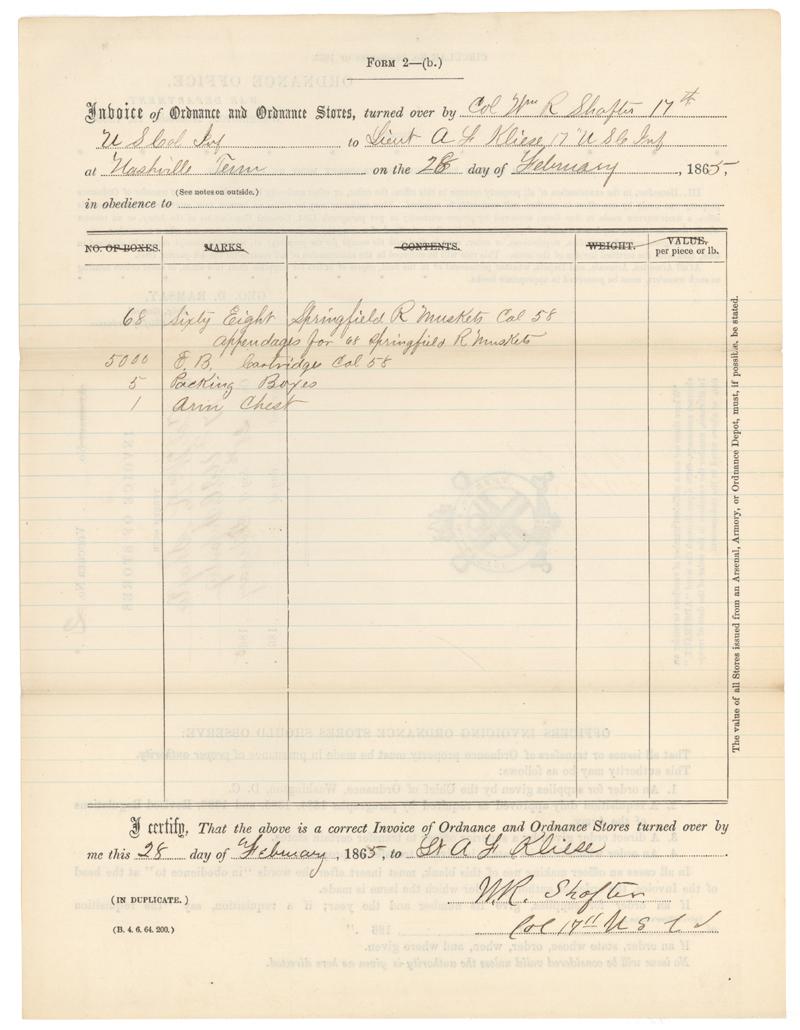 FORM 2—(b.)
Invoice of Ordnance and Ordnance Stores, turned over by Col Wm R Shafter 17th
U S Col Inf to Lieut A F Kliese, 17 U S C Inf
at Nashville Tenn on the 28 day of February, 1865,
(See notes on outside.)
in obedience to
NO. OF BOXES. MARKS. CONTENTS. WEIGHT. VALUE, per piece or lb.
68 Sixty Eight Springfield R Muskets Cal 58
appendages for 68 Springfield R Muskets
5000 E. B. Cartridges Cal 58
5 Packing Boxes
1 Arm Chest
The value of all Stores issued from an Arsenal, Armory, or Ordnance Depot, must, if possible, be stated.
I certify, That the above is a correct Invoice of Ordnance and Ordnance Stores turned over by
me this 28 day of February, 1865, to Lt A F Kliese
(IN DUPLICATE.)
W.R. Shafter
(B. 4. 6. 64. 200.)
Col 17th U S C I